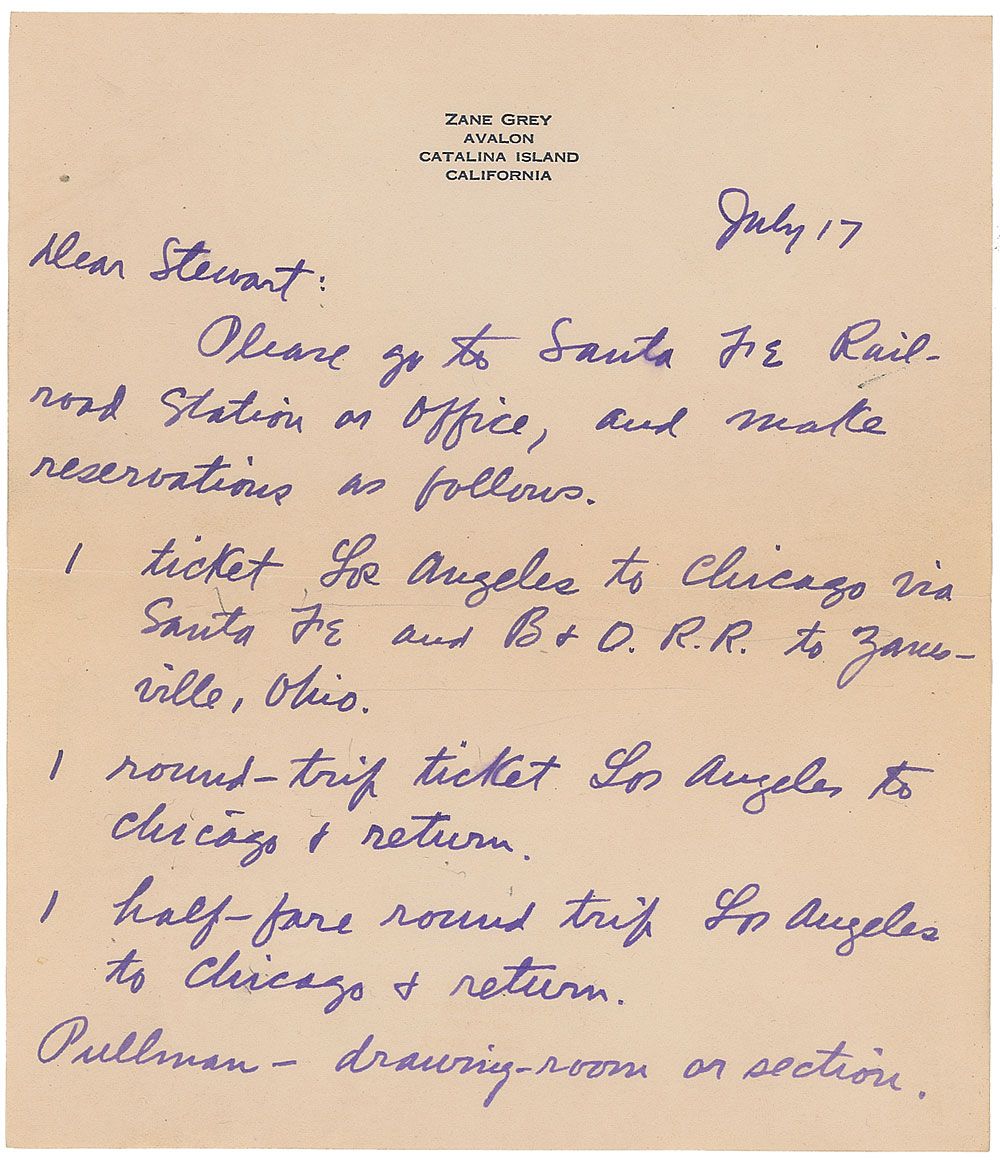 ZANE GREY
AVALON
CATALINA ISLAND
CALIFORNIA
July 17
Dear Stewart:
Please go to Santa FE Rail-
road Station or Office, and make
reservations as follows.
1 ticket Los Angeles to Chicago via
Santa FE and B & O. R.R. to Zanes-
ville, Ohio.
1 round-trip ticket Los Angeles to
Chicago & return.
1 half-fare round trip Los Angeles
to Chicago & return.
Pullman - drawing-room or section.